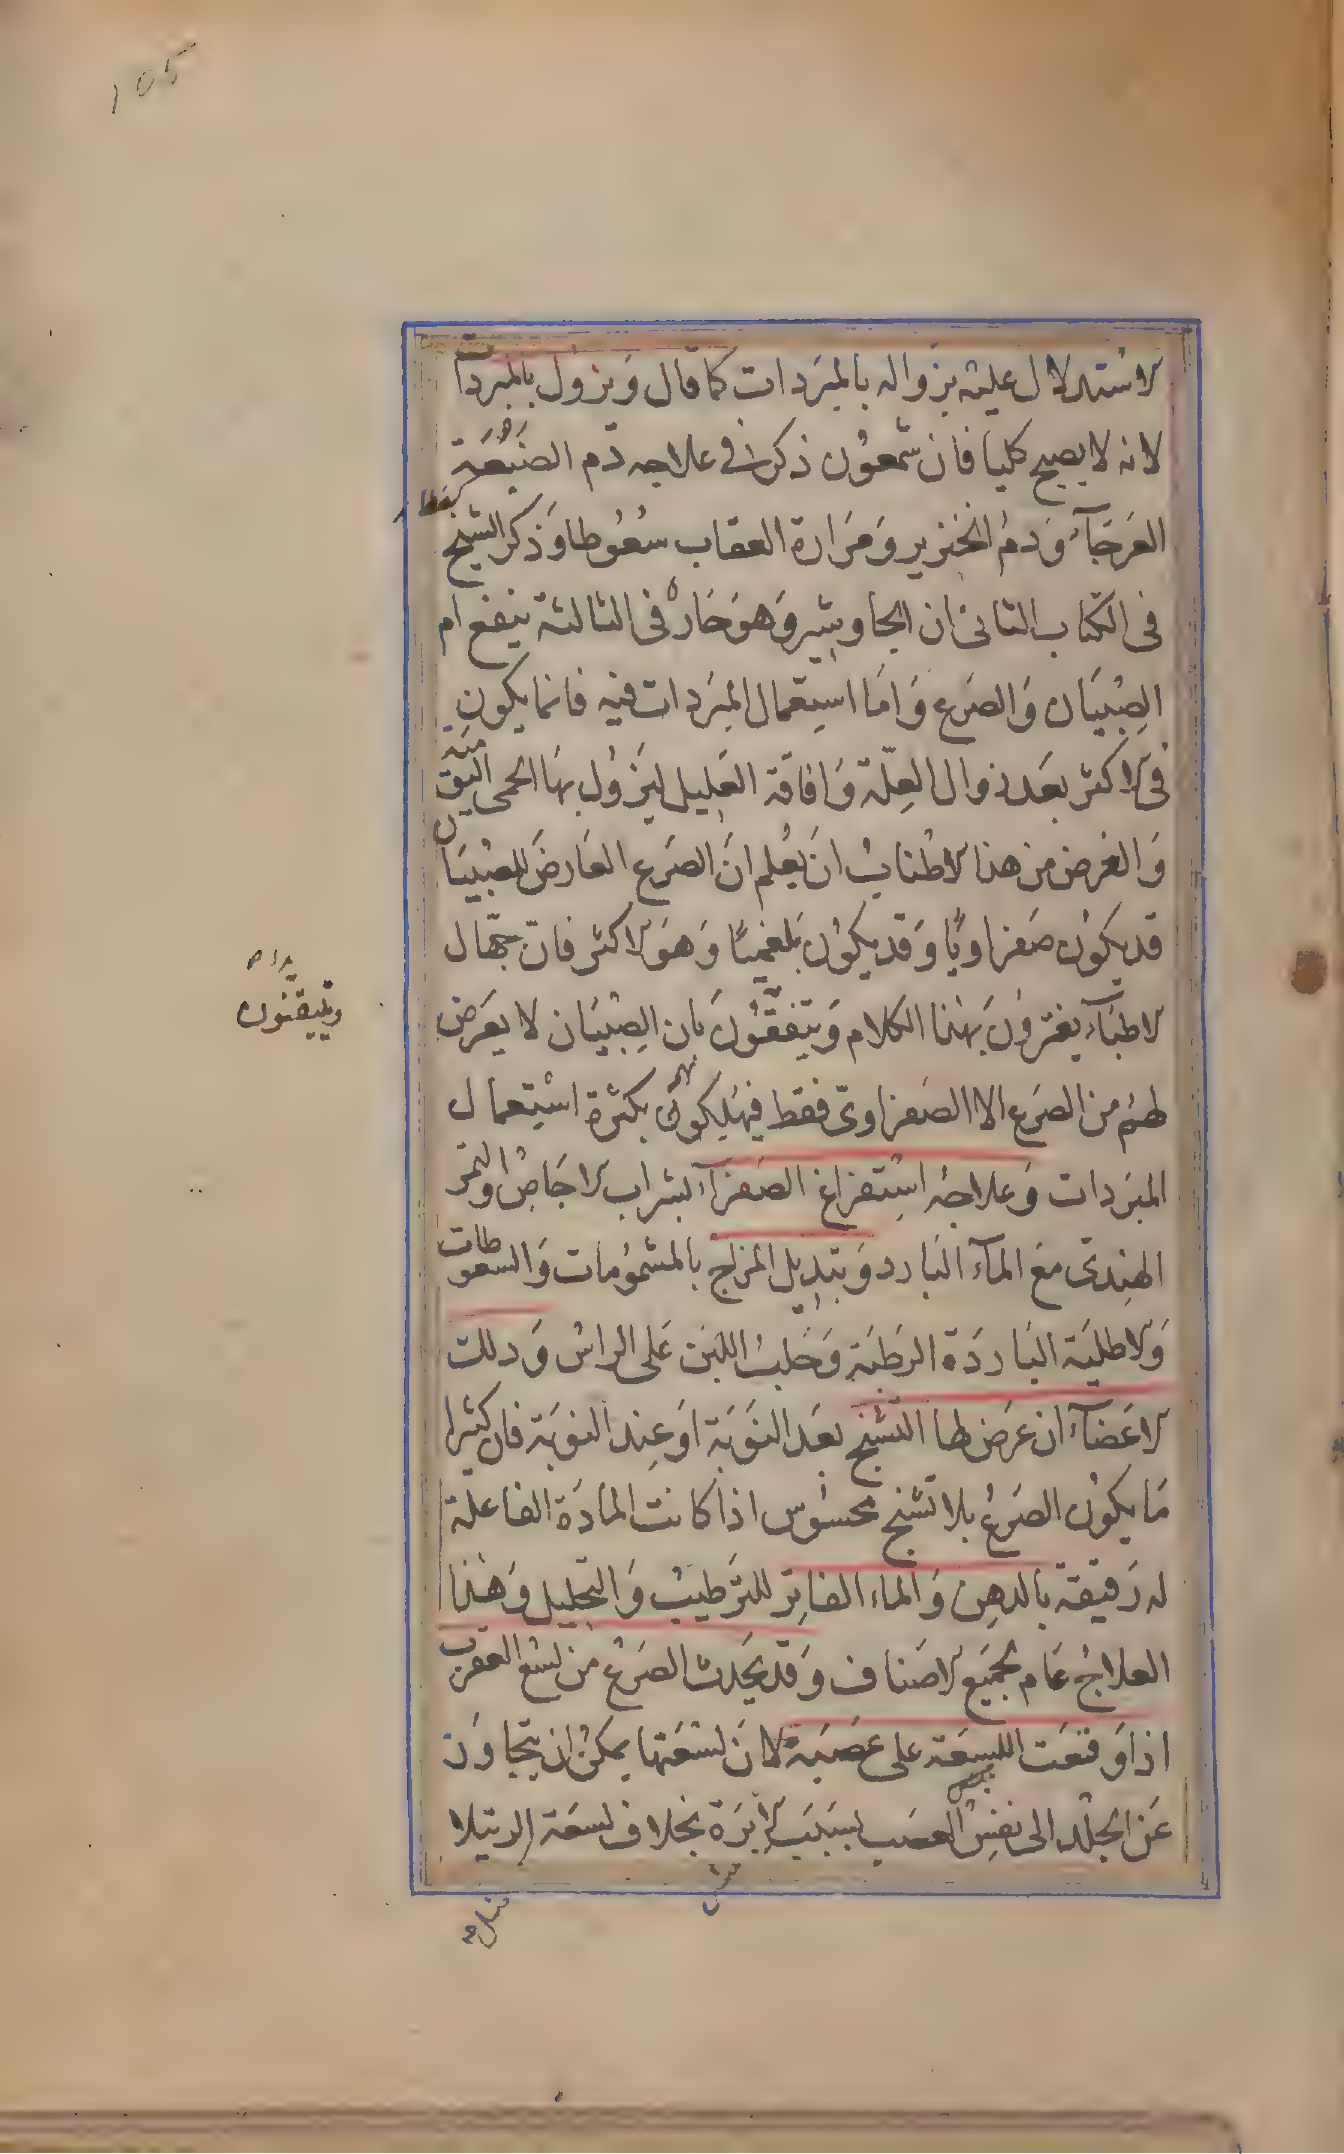 ١٥٥
الاستدلال عليه بزواله بالمبردات كما قال وَيزول بالمبردات
لانه لا يصح كليا فان شمعون ذكر في علاجه دم الضبُعة
العَرجَآء وَدمُ الخنزير وَمَرارة العقاب سعُوطا وَذكر الشيخ
فى الكتاب الثانى ان الجاوشير وَهوَ حَارٌ فى الثالثة ينفع ام
الصِبْيَان وَالصَرع وَامَا استعمال المبَردات فيه فانما يكون
فى الاكثر بعَد زوال العِلّة وَافاقة العَليل ليَزوُل بهَا الحمى اليَّقِ
وَالغرض من هذا الاطناب ان يَعُلم انَ الصَرع العَارضَ للصبْيَان
قد يكوُن صَفراويًا وَقد يكوُن بَلغميًا وَهوَ الاكثر فانّ جهّال
الاطبَآء يغترونَ بَهذا الكلام وَيتفقُونَ بَان الصِبْيَان لا يعَرض
لهُم من الصَرع الا الصَفراوىّ فقط فيهَلِكونهم بكثرة استعمال
المبَردات وَعلاجُه استفراغ الصَفرآء بشراب الاجَاصْ والتمر
الهِندىّ مَع المآء البَارد وَتبديل المزاج بالمشمُومات وَالسعوطات
وَالاطليَة البَاردَة الرَطبَة وَحَلبُ اللبَن عَلى الراسْ وَدلك
الاعَضآء ان عرَض لها التشنج بعَد النوَبَة اوَ عِند النوَبة فان كثيرا
مَا يكوُن الصَرعُ بلا تشنج محسوُس اذا كانت المادَة الفاعلة
له رَقيقة بالدهِن وَالماء الفاتِر للترَطيبْ وَالتحليل وَهَذا
العلاجُ عَام لجميَع الاصَناف وَقد يحَدث الصَرعُ من لسَع العقرب
اذا وَقعَت اللسِعَة على عصَبَة لانَ لسْعَتها يمكن ان يتجاوَز
عَن الجلْد الى نفسِ العصَب بسَبَب الابَرة بخلاف لسعَة الرتيلا
وتيقنون